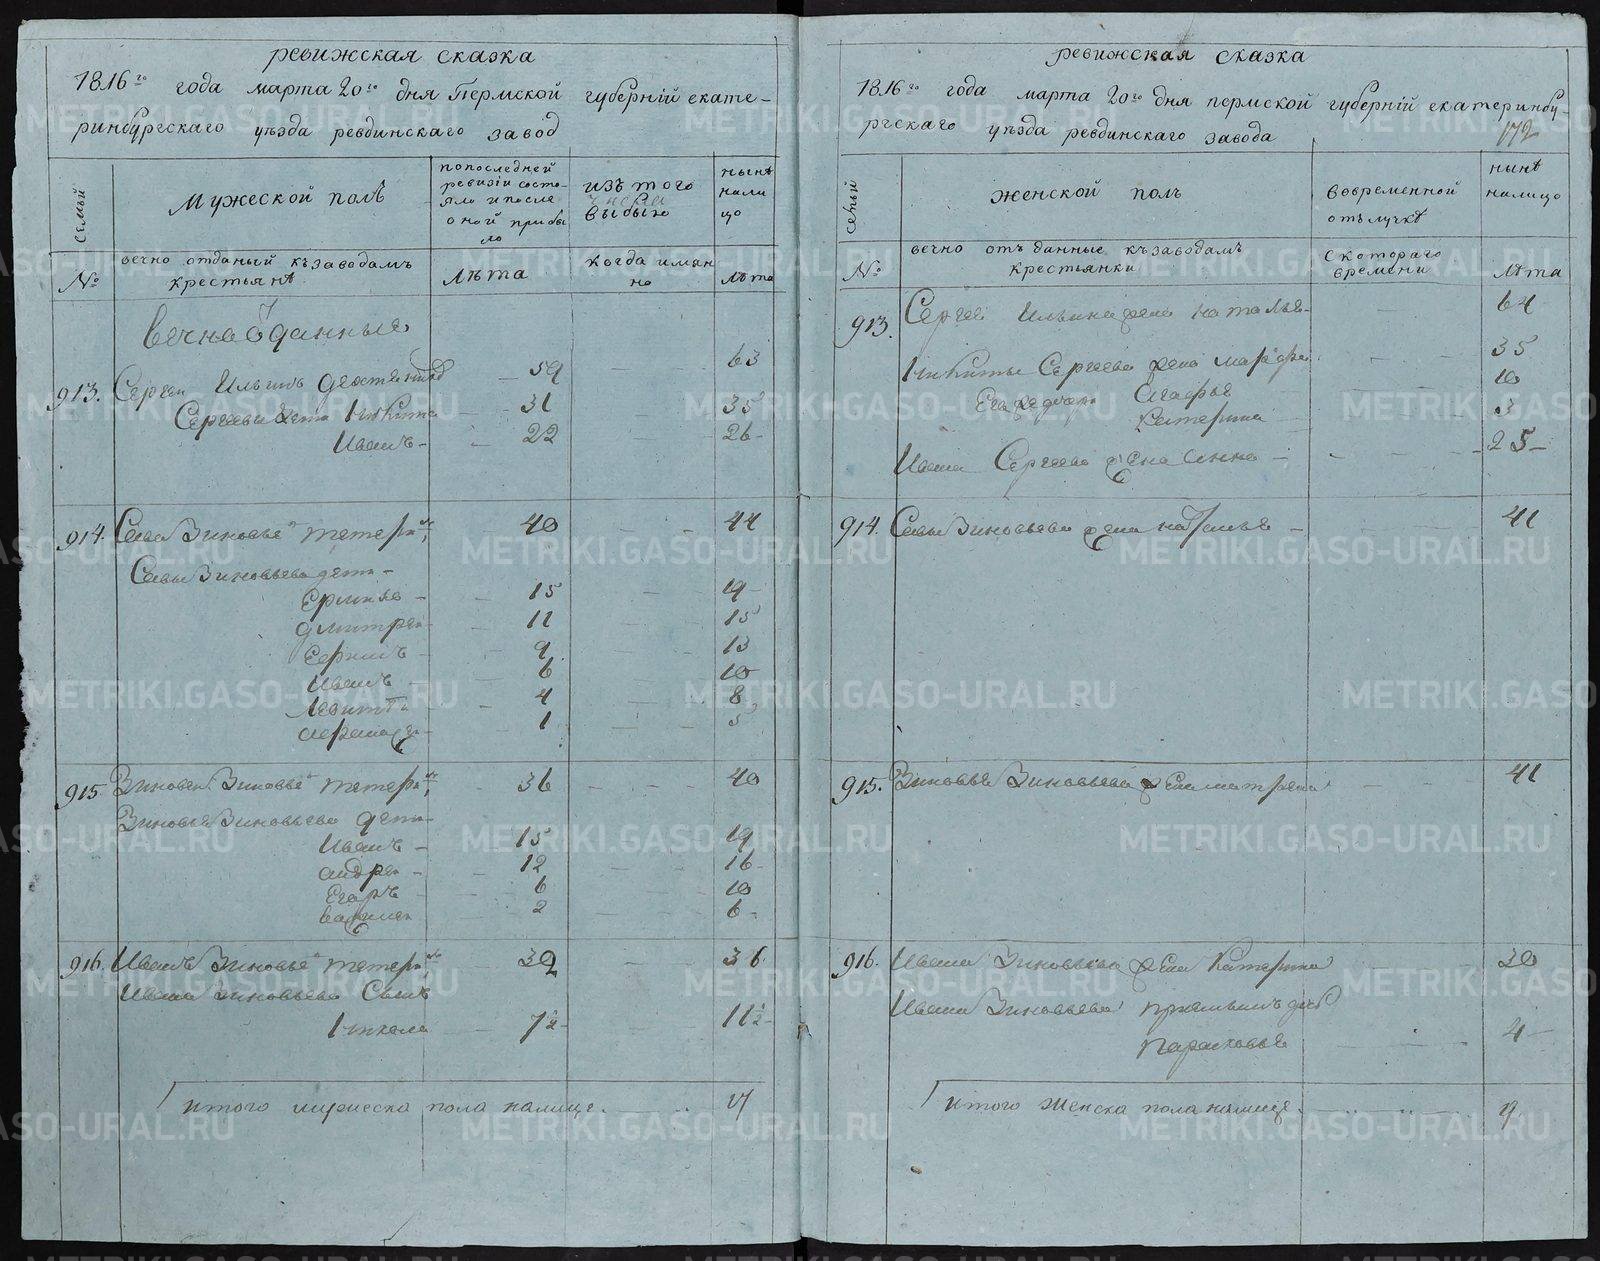 ревижская сказка
1816го года марта 20го дня Пермской губернiй екате-
ринбургскаго уѣзда ревдинскаго завод
Семьи
Мужеской полъ
попоследней
ревизiи состо-
яло и после
оной прибы
ло
изъ того
числа
выбыло
нынѣ
нали
цо
№
вечно отданый къзаводамъ
крестьянѣ
лѣта
когда имян
но
лѣта
вечна данные
913. Сергеи Ильинъ 59 63
Сергеевы дети Никита 31 35
Иванъ 22 26
914. Сава Зиновье 40 44
Савы Зиновьева дети
15 19
Дмитреи 11 15
9 13
Иванъ 6 10
4 8
1 5
915. Зиновеи Зиновье 36 40
Зиновья Зиновьева дети
Иванъ 15 19
андреи 12 16
Егоръ 6 10
василеи 2 6
916. Иванъ Зиновье 32 36
Ивана Зиновьева Сынъ
Никола 7½ 11½
итого мужеска пола налице 17
ревижская сказка
1816го года марта 20го дня пермской губернiй екатеринбу-
ргскаго уѣзда ревдинскаго завода
172
семьи
женской полъ
вовременной
отълучкѣ
нынѣ
налицо
№
вечно отъданные къзаводамъ
крестьянки
скотораго
времени
лѣта
913. Сергея Ильина жена наталья 64
Никиты Сергеева жена марфа 35
Ево дочери Агафья 10
Катерина 3
Ивана Сергеева жена Анна 25
914. Савы Зиновьева жена наталья 41
915. Зиновья Зиновьева жена матрена 41
916. Ивана Зиновьева жена Катерина 30
Ивана Зиновьева
Парасковья 4
итого женска пола налице 9